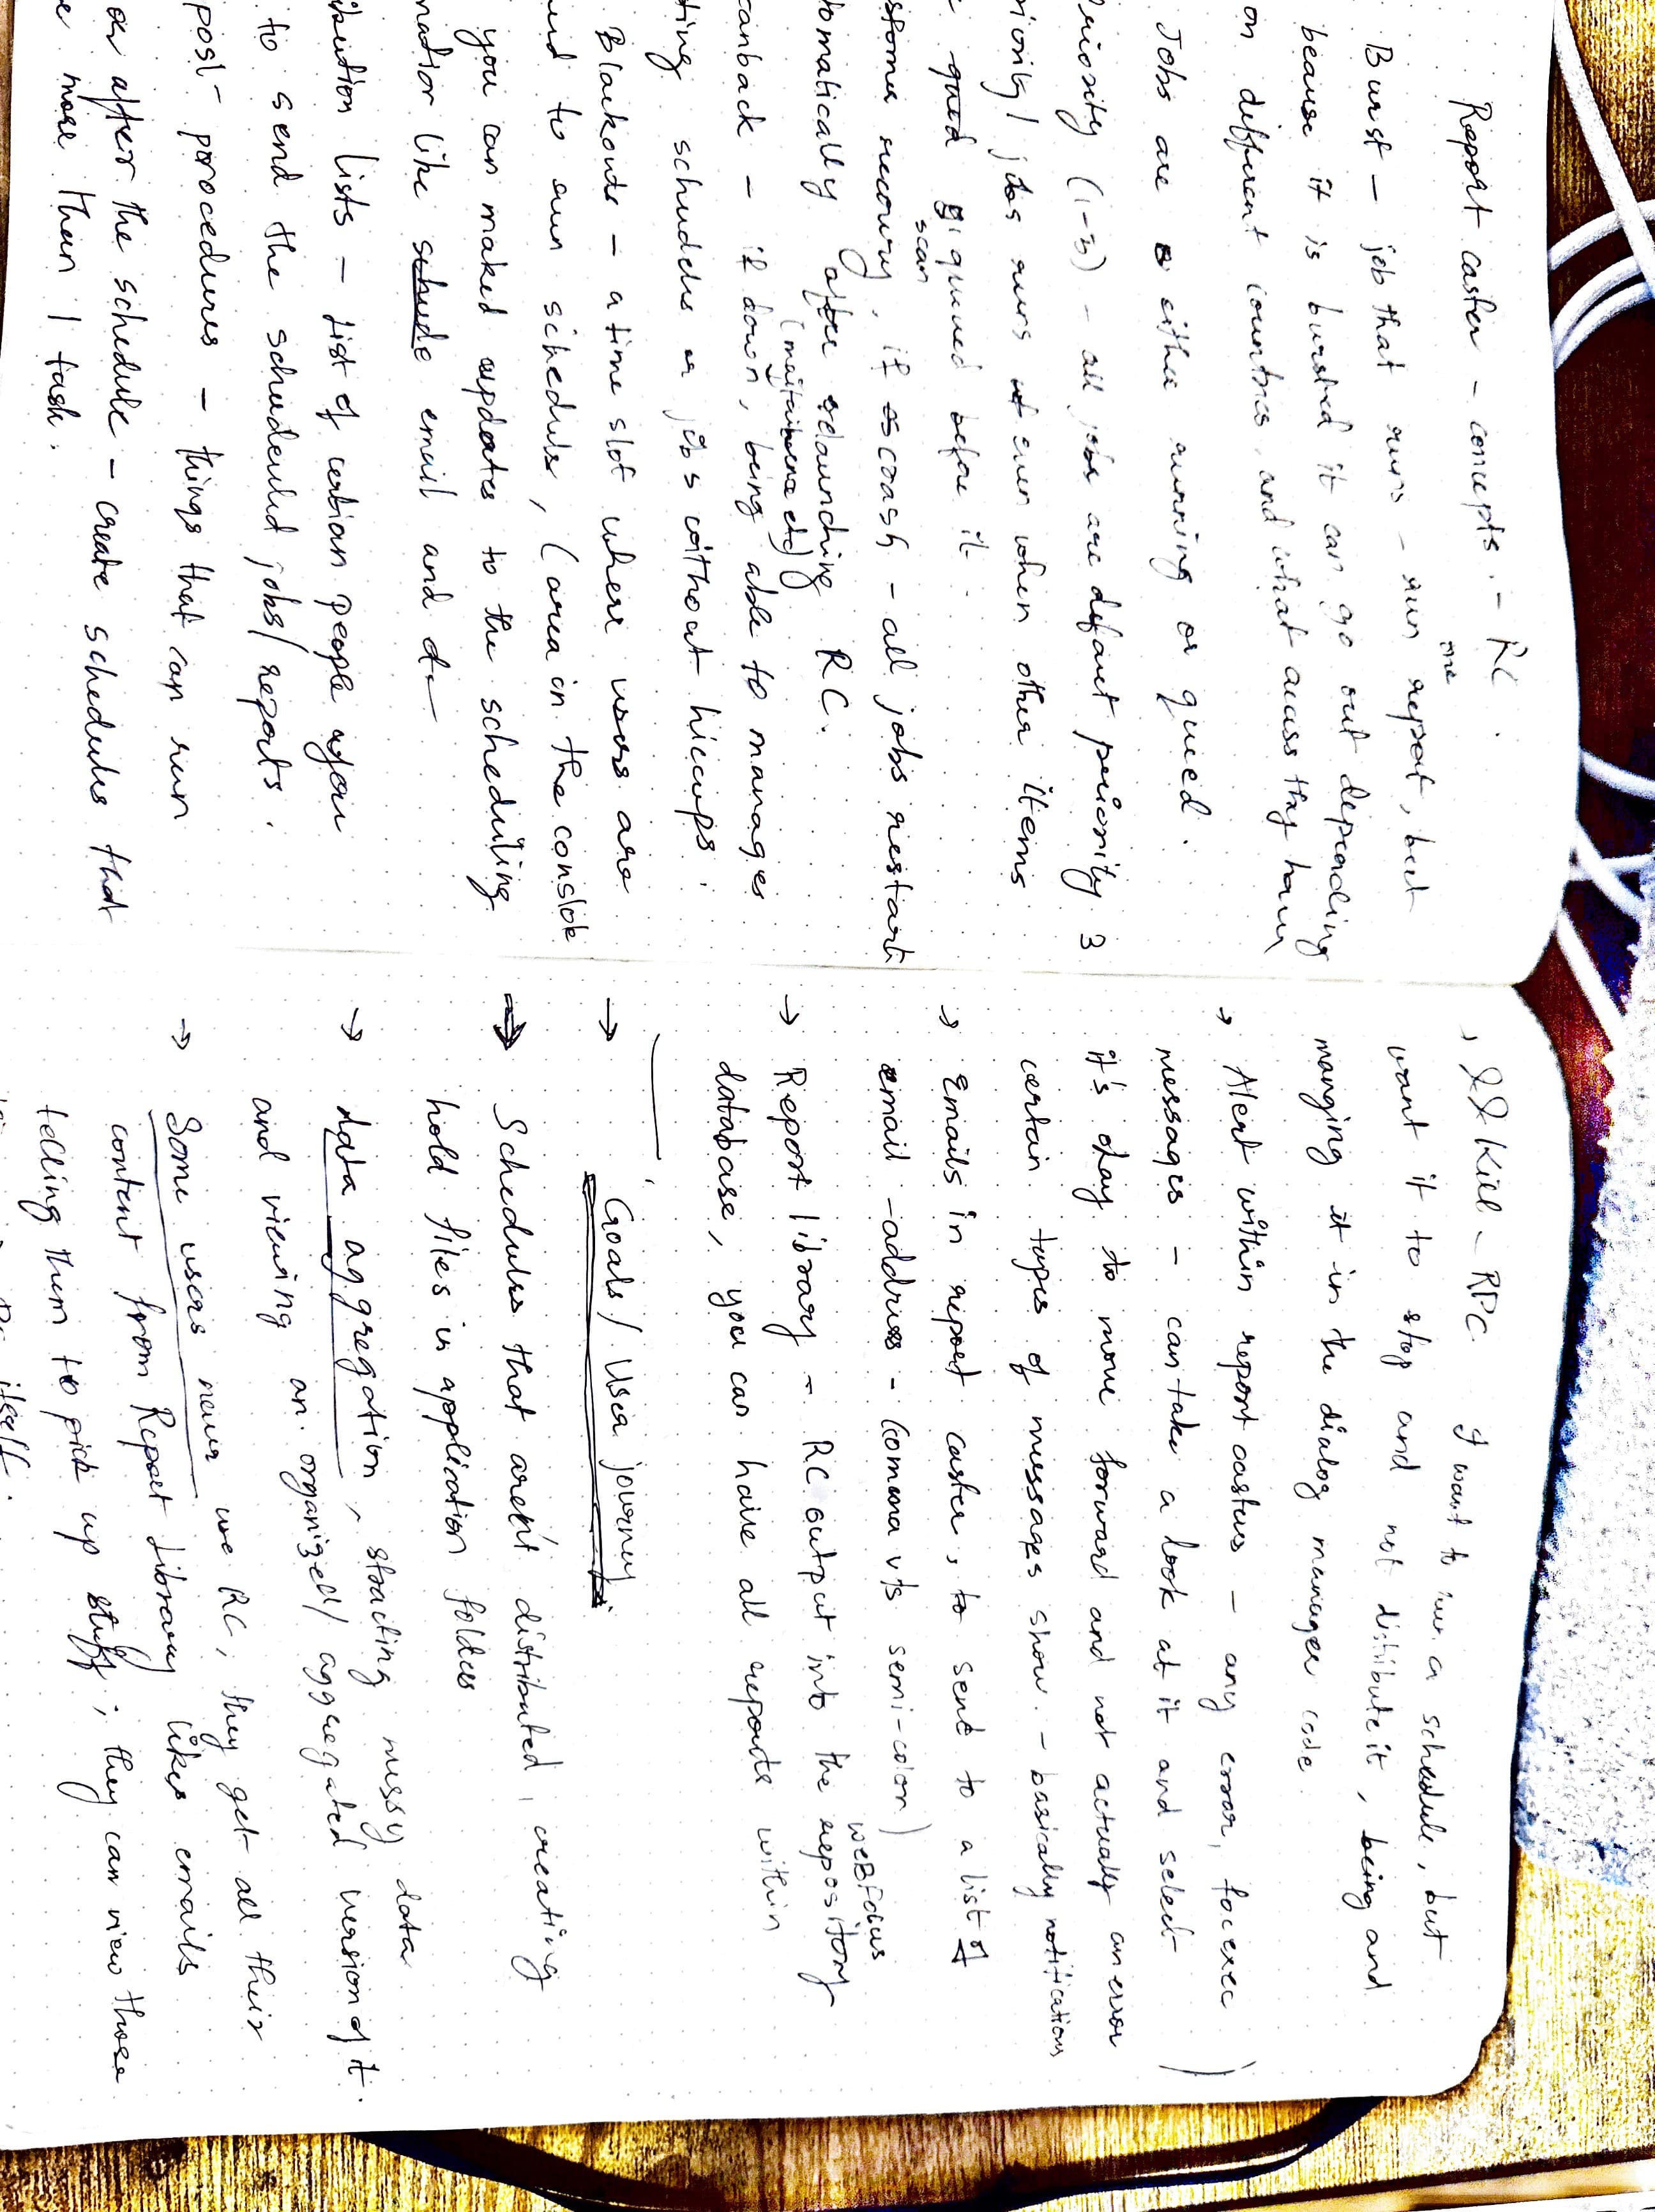 Report caster - concepts. - RC.
Burst - job that runs - run one report, but
because it is bursted it can go out depending
on different countries, and what access they have
Jobs are either running or queued.
priority (1-3) - all jobs are default priority 3
jobs runs run when other items
queued before it.
scan
recovery, if crash - all jobs restart
tomatically after relaunching RC.
(maitainence etc)
anback - if down, being able to manages
ting schudeles or jobs without hiccups.
Blackouts - a time slot where users are
to run schedules, (area in the console
you can maked updates to the scheduling
mation like schude email and
ibution lists - list of certian people you
to send the scheudeuled jobs/reports.
post-procedures - things that can run
or after the schedule - create schedules that
more than 1 task.
Kill - RPC I want to run a schedule, but
want it to stop and not distribute it, being and
manging it in the dialog manager code.
→ Alert within report casters - any error, focexec
messages - can take a look at it and select
it's okay to move forward and not actually an error
certain types of messages show. - basically notifications
→ Emails in report caster, to send to a list of
email -address - (comma v/s semi-colon)
WebFocus
→ Report library - RC output into the repository
database, you can have all reports within
→ Goals/User journey.
→ Schedules that aren't distributed, creating
hold files in application folders
→ data aggregation, stracting messy data
and viewing an organized/aggregated version of it.
→ Some users never use RC, they get all their
content from Report Library likes emails
telling them to pick up stuff; they can view those
itself.